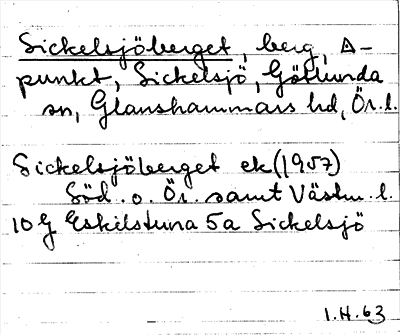 Sickelsjöberget, berg, Δ-
punkt, Sickelsjö, Götlunda
sn, Glanshammars hd, Ör.l.
Sickelsjöberget ek (1957)
Söd. o. Ör. samt Västm. l.
10 G Eskilstuna 5a Sickelsjö
I.H.63